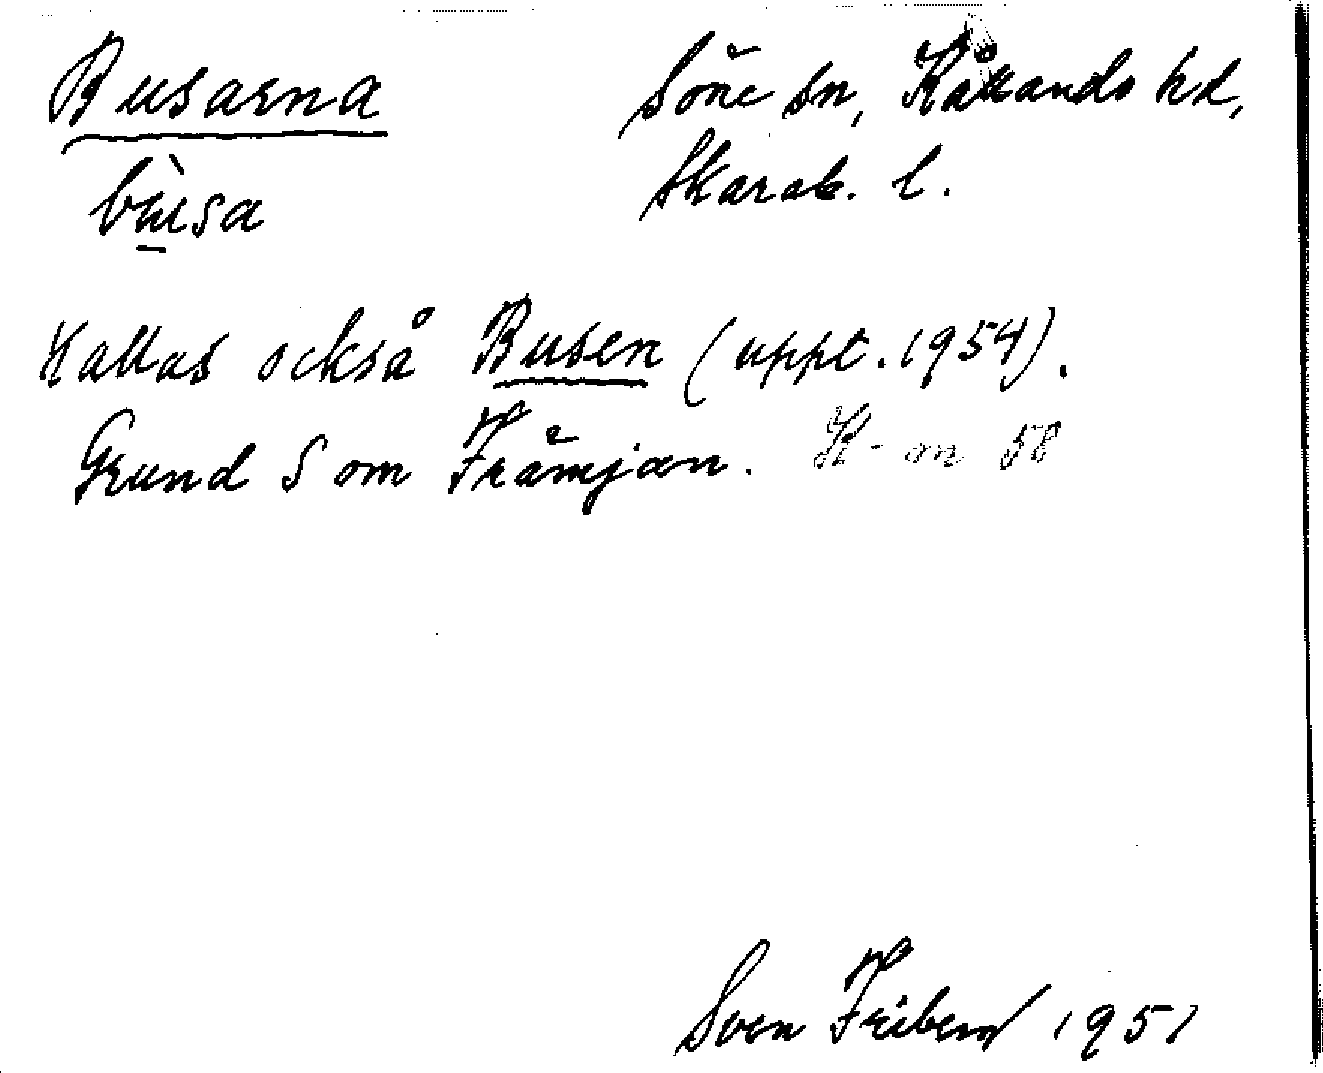 Busarna Söne sn, Kållands hd,
bùsa Skarab. l.
Kallas också Busen (uppt. 1954).
Grund S om Främjan. H-m 58
Sven Friberg 1951